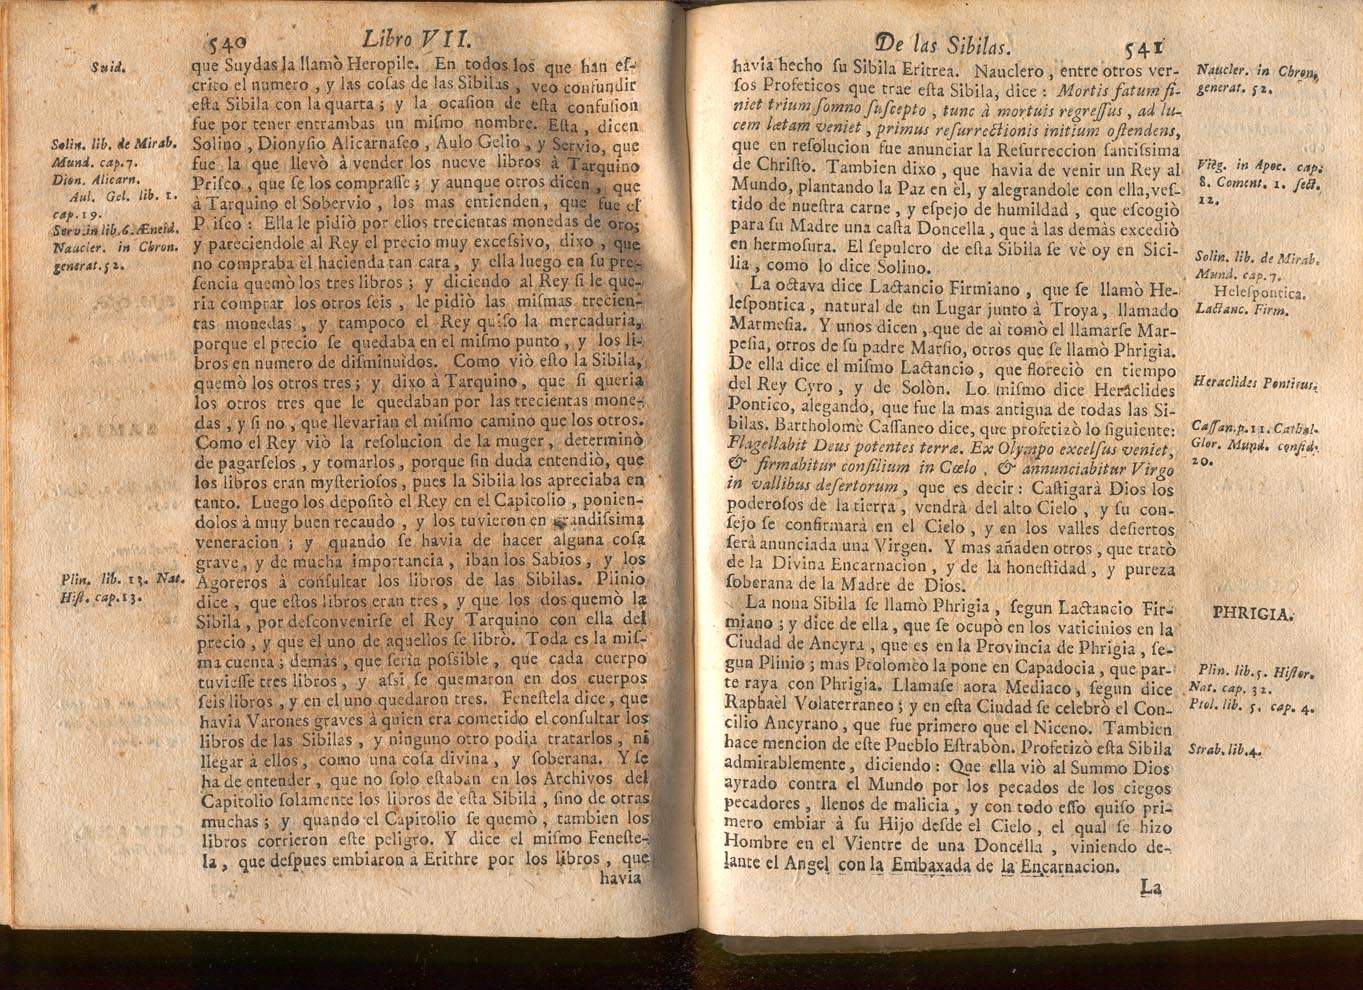 540 Libro VII.
Suid.
que Suydas la llamò Heropile. En todos los que han eſ-
crito el numero, y las coſas de las Sibilas, veo confundir
eſta Sibila con la quarta; y la ocaſion de eſta confuſion
fue por tener entrambas un miſmo nombre. Eſta, dicen
Solin. lib. de Mirab.
Mund. cap. 7.
Dion. Alicarn.
Aul. Gel. lib. 1.
cap. 19.
Serv. in lib. 6. Æneid.
Naucler. in Chron.
generat. 52.
Solino, Dionyſio Alicarnaſeo, Aulo Gelio, y Servio, que
fue la que llevò à vender los nueve libros à Tarquino
Priſco, que ſe los compraſſe; y aunque otros dicen, que
à Tarquino el Sobervio, los mas entienden, que fue el
Priſco: Ella le pidiò por ellos trecientas monedas de oro;
y pareciendole al Rey el precio muy exceſsivo, dixo, que
no compraba èl hacienda tan cara, y ella luego en ſu pre-
ſencia quemò los tres libros; y diciendo al Rey ſi le que-
ria comprar los otros ſeis, le pidiò las miſmas trecien-
tas monedas, y tampoco el Rey quiſo la mercaduria,
porque el precio ſe quedaba en el miſmo punto, y los li-
bros en numero de diſminuìdos. Como viò eſto la Sibila,
quemò los otros tres; y dixo à Tarquino, que ſi queria
los otros tres que le quedaban por las trecientas mone-
das, y ſi no, que llevarian el miſmo camino que los otros.
Como el Rey viò la reſolucion de la muger, determinò
de pagarſelos, y tomarlos, porque ſin duda entendiò, que
los libros eran myſterioſos, pues la Sibila los apreciaba en
tanto. Luego los depoſitò el Rey en el Capitolio, ponien-
dolos à muy buen recaudo, y los tuvieron en grandiſsima
veneracion; y quando ſe havia de hacer alguna coſa
grave, y de mucha importancia, iban los Sabios, y los
Agoreros à conſultar los libros de las Sibilas. Plinio
Plin. lib. 13. Nat.
Hiſt. cap. 13.
dice, que eſtos libros eran tres, y que los dos quemò la
Sibila, por deſconvenirſe el Rey Tarquino con ella del
precio, y que el uno de aquellos ſe librò. Toda es la miſ-
ma cuenta; demàs, que ſeria poſsible, que cada cuerpo
tuvieſſe tres libros, y aſsi ſe quemaron en dos cuerpos
ſeis libros, y en el uno quedaron tres. Feneſtela dice, que
havia Varones graves à quien era cometido el conſultar los
libros de las Sibilas, y ninguno otro podia tratarlos, ni
llegar à ellos, como una coſa divina, y ſoberana. Y ſe
ha de entender, que no ſolo eſtaban en los Archivos del
Capitolio ſolamente los libros de eſta Sibila, ſino de otras
muchas; y quando el Capitolio ſe quemò, tambien los
libros corrieron eſte peligro. Y dice el miſmo Feneſte-
la, que deſpues embiaron à Erithre por los libros, que
havia
De las Sibilas. 541
havia hecho ſu Sibila Eritrea. Nauclero, entre otros ver-
ſos Profeticos que trae eſta Sibila, dice: Mortis fatum fi-
niet trium ſomno ſuſcepto, tunc à mortuis regreſſus, ad lu-
cem lætam veniet, primus reſurrectionis initium oſtendens,
que en reſolucion fue anunciar la Reſurreccion ſantiſsima
de Chriſto. Tambien dixo, que havia de venir un Rey al
Mundo, plantando la Paz en èl, y alegrandole con ella, veſ-
tido de nueſtra carne, y eſpejo de humildad, que eſcogiò
para ſu Madre una caſta Doncella, que à las demàs excediò
en hermoſura. El ſepulcro de eſta Sibila ſe vè oy en Sici-
lia, como lo dice Solino.
Naucler. in Chron.
generat. 52.
Vieg. in Apoc. cap.
8. Coment. 1. ſect.
12.
Solin. lib. de Mirab.
Mund. cap. 7.
Heleſpontica.
Lactanc. Firm.
La octava dice Lactancio Firmiano, que ſe llamò He-
leſpontica, natural de un Lugar junto à Troya, llamado
Marmeſia. Y unos dicen, que de aì tomò el llamarſe Mar-
peſia, otros de ſu padre Marſio, otros que ſe llamò Phrigia.
De ella dice el miſmo Lactancio, que floreciò en tiempo
del Rey Cyro, y de Solòn. Lo miſmo dice Heraclides
Pontico, alegando, que fue la mas antigua de todas las Si-
bilas. Bartholomè Caſſaneo dice, que profetizò lo ſiguiente:
Flagellabit Deus potentes terræ. Ex Olympo excelſus veniet,
& firmabitur conſilium in Cœlo, & annunciabitur Virgo
in vallibus deſertorum, que es decir: Caſtigarà Dios los
poderoſos de la tierra, vendrà del alto Cielo, y ſu con-
ſejo ſe confirmarà en el Cielo, y en los valles deſiertos
ſerà anunciada una Virgen. Y mas añaden otros, que tratò
de la Divina Encarnacion, y de la honeſtidad, y pureza
ſoberana de la Madre de Dios.
Heraclides Ponticus.
Caſſan. p. 11. Cathal.
Glor. Mund. conſid.
20.
La nona Sibila ſe llamò Phrigia, ſegun Lactancio Fir-
miano; y dice de ella, que ſe ocupò en los vaticinios en la
Ciudad de Ancyra, que es en la Provincia de Phrigia, ſe-
gun Plinio; mas Ptolomèo la pone en Capadocia, que par-
te raya con Phrigia. Llamaſe aora Mediaco, ſegun dice
Raphaèl Volaterraneo; y en eſta Ciudad ſe celebrò el Con-
cilio Ancyrano, que fue primero que el Niceno. Tambien
hace mencion de eſte Pueblo Eſtrabòn. Profetizò eſta Sibila
admirablemente, diciendo: Que ella viò al Summo Dios
ayrado contra el Mundo por los pecados de los ciegos
pecadores, llenos de malicia, y con todo eſſo quiſo pri-
mero embiar à ſu Hijo deſde el Cielo, el qual ſe hizo
Hombre en el Vientre de una Doncella, viniendo de-
lante el Angel con la Embaxada de la Encarnacion.
PHRIGIA.
Plin. lib. 5. Hiſtor.
Nat. cap. 32.
Ptol. lib. 5. cap. 4.
Strab. lib. 4.
La